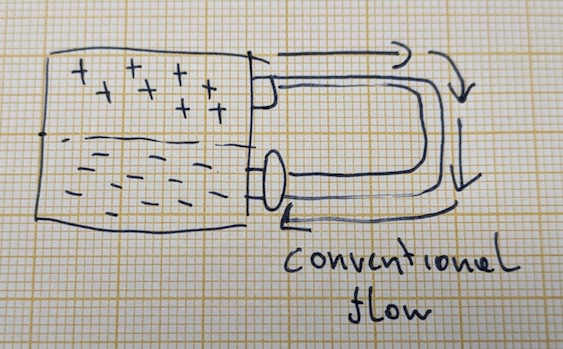 conventional
flow